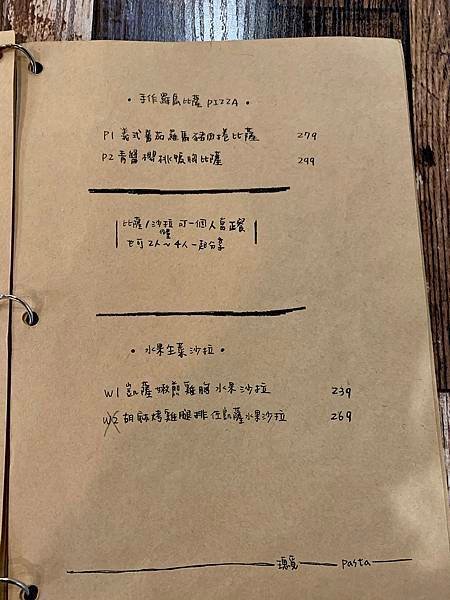 • 手作羅馬比薩 PIZZA •
P1 義式蕃茄羅馬豬肉捲比薩 279
P2 青醬櫻桃鴨胸比薩 299
比薩/沙拉 可一個人當正餐
也可 2人~4人一起分享
• 水果生菜沙拉 •
W1 凱薩嫩煎雞胸水果沙拉 239
W2 胡麻烤雞腿排佐凱薩水果沙拉 269
Pasta